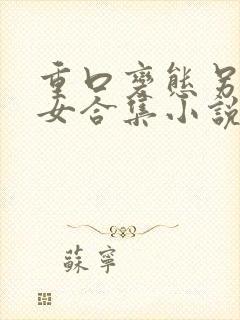 重口變態另
女合集小說
蘇寧